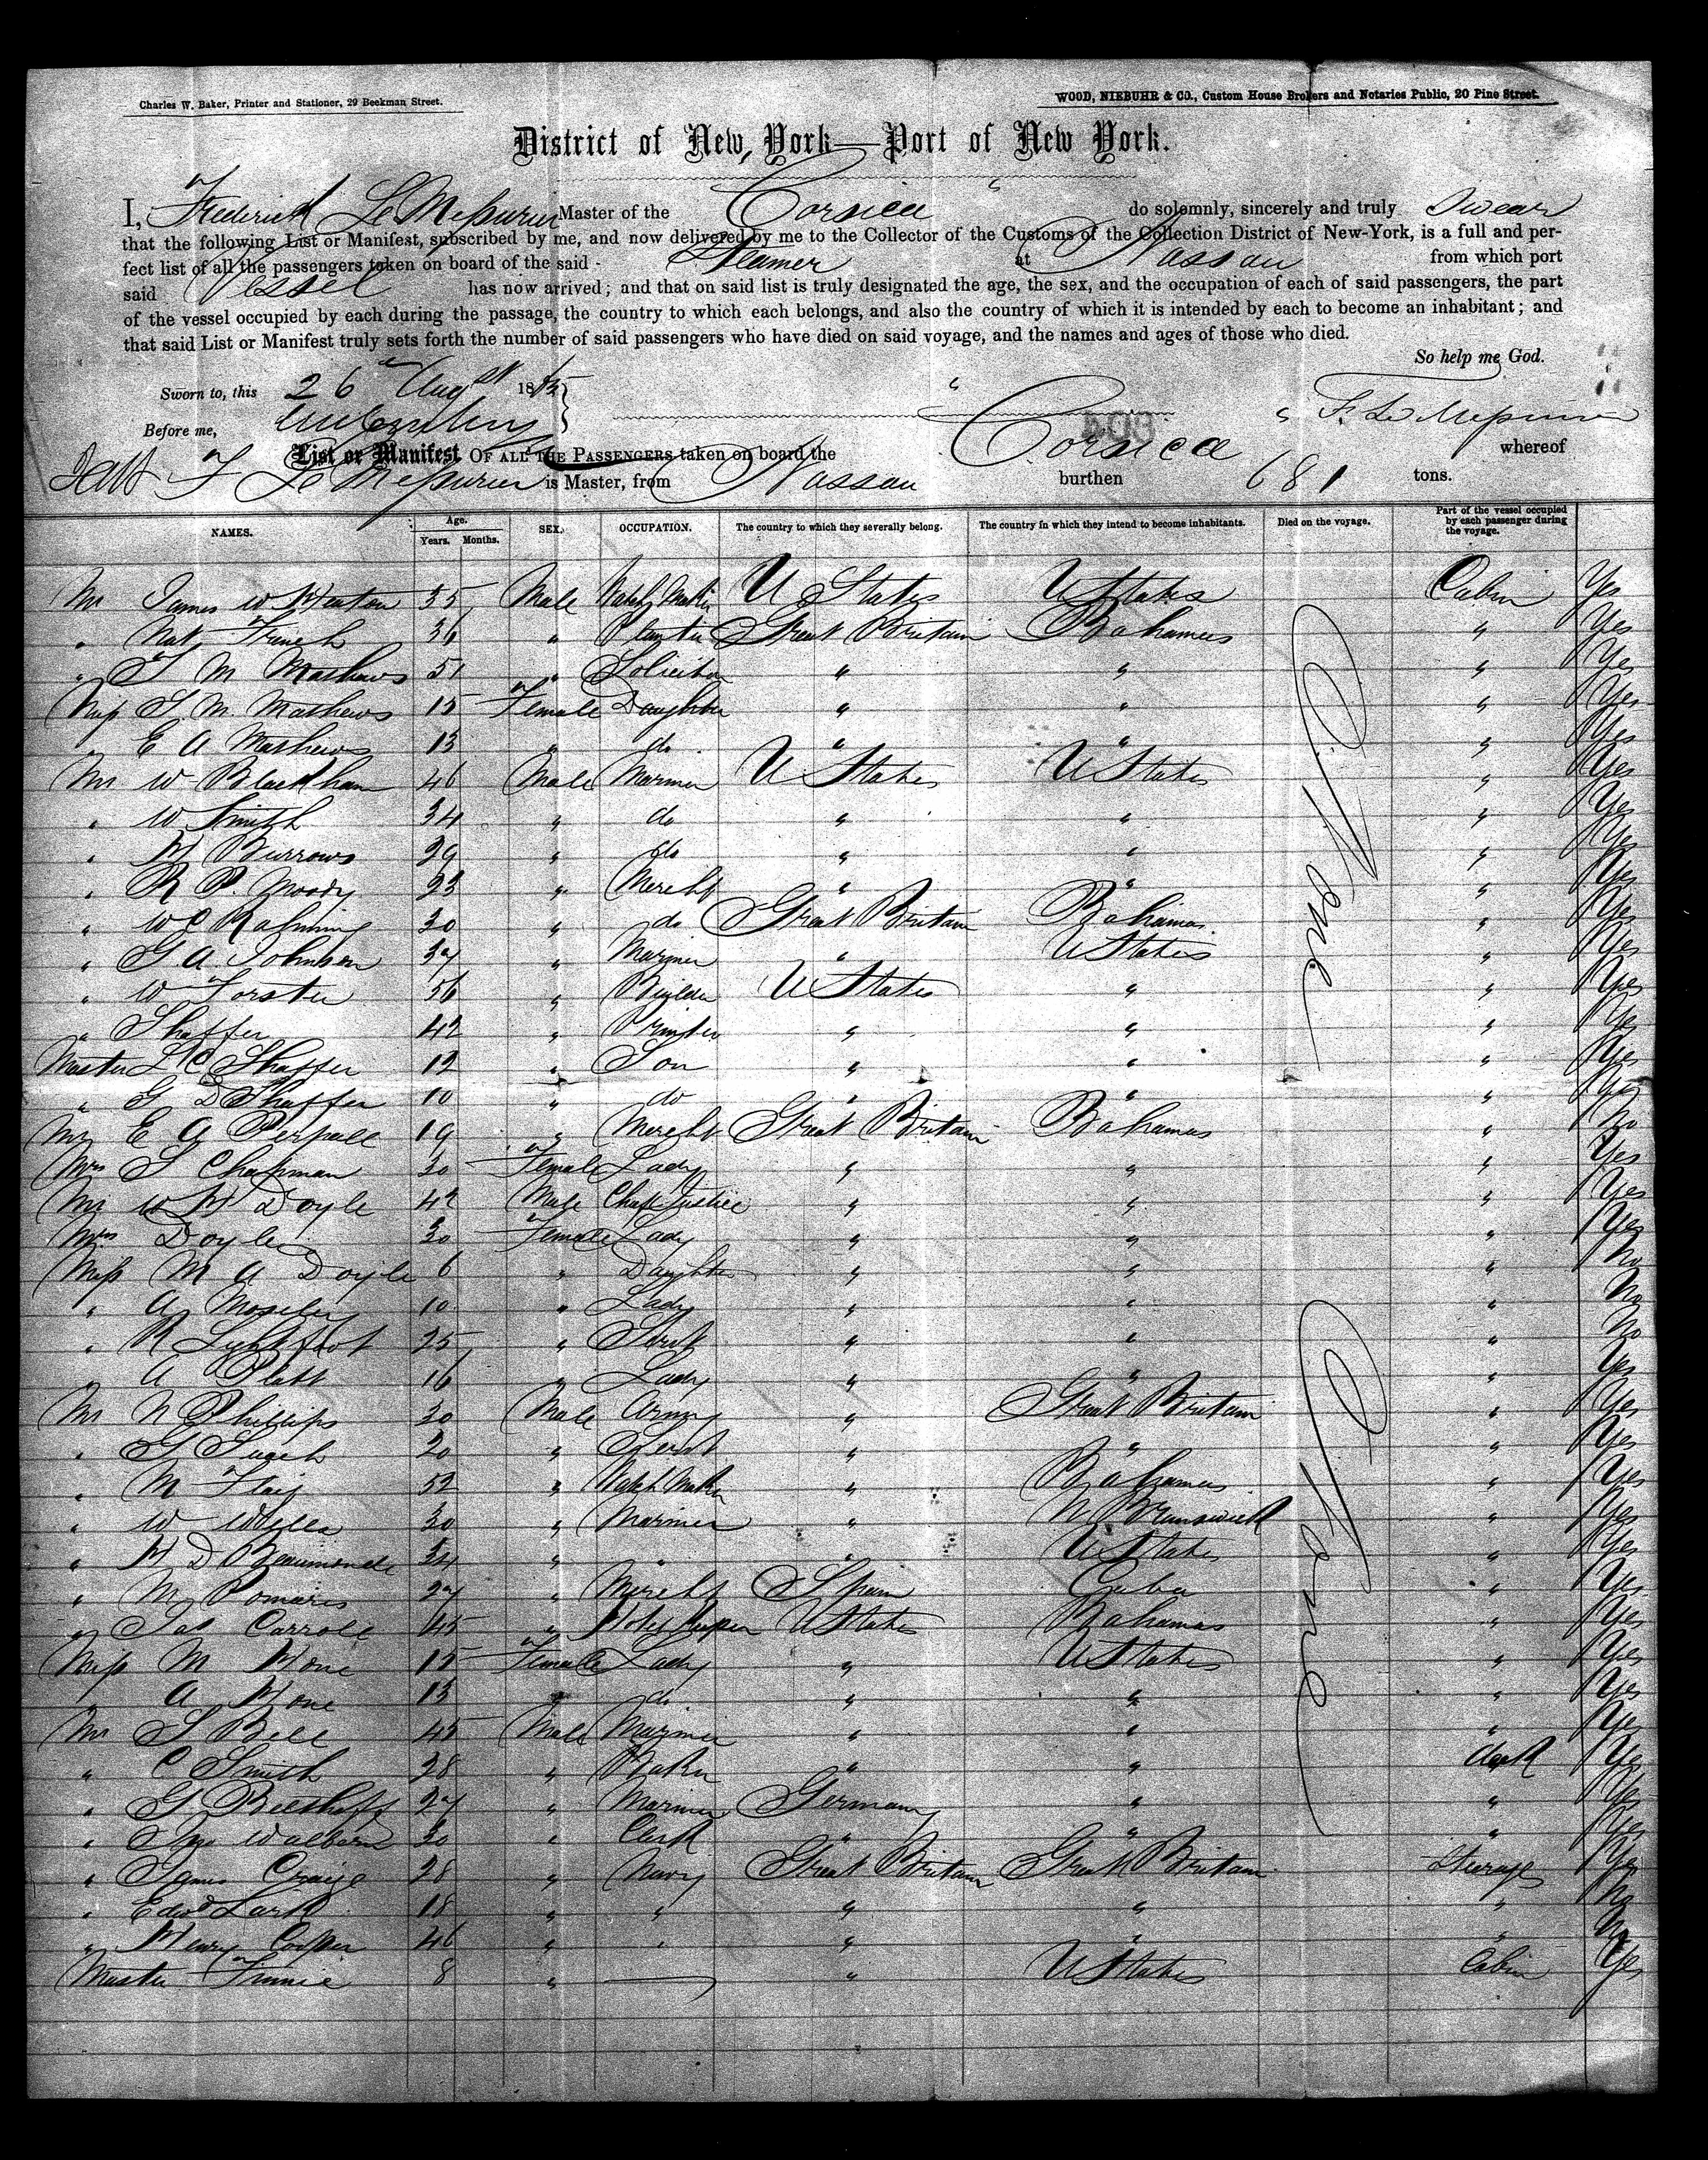 Charles W. Baker, Printer and Stationer, 29 Beekman Street.
WOOD, NIEBUHR & CO., Custom House Brokers and Notaries Public, 20 Pine Street.
District of New York—Port of New York.
I, Frederick Le Mesurier Master of the Corsica do solemnly, sincerely and truly Swear
that the following List or Manifest, subscribed by me, and now delivered by me to the Collector of the Customs of the Collection District of New-York, is a full and per-
fect list of all the passengers taken on board of the said - Steamer at Nassau from which port
said Vessel has now arrived; and that on said list is truly designated the age, the sex, and the occupation of each of said passengers, the part
of the vessel occupied by each during the passage, the country to which each belongs, and also the country of which it is intended by each to become an inhabitant; and
that said List or Manifest truly sets forth the number of said passengers who have died on said voyage, and the names and ages of those who died.
So help me God.
Sworn to, this 26 Augst 1865
F. Le Mesurier
Before me,
List or Manifest OF ALL THE PASSENGERS taken on board the Corsica whereof
F Le Mesurier is Master, from Nassau burthen 681 tons.
NAMES. Age. Years. Months. SEX. OCCUPATION. The country to which they severally belong. The country in which they intend to become inhabitants. Died on the voyage. Part of the vessel occupied by each passenger during the voyage.
Mr James W 35 Male Watch Maker U States U States Cabin Yes
" Nat French 36 " Planter Great Britain Bahamas " Yes
" T M Mathews 51 " Solicitor " " " Yes
Miss S. M. Mathews 15 Female Daughter " " " Yes
" E A Mathews 13 " do " " " Yes
Mr W Blackham 46 Male Mariner U States U States " Yes
" W Smith 34 " do " " " Yes
" H Burrows 29 " do " " " Yes
" R P. Moody 23 " Mercht " " " Yes
" W C Rahming 30 " do Great Britain Bahamas " Yes
" G A Johnson 37 " Mariner " U States " Yes
" W Forster 56 " Builder U States " " Yes
" Shaffer 42 " Printer " " " Yes
Master L C Shaffer 12 " Son " " " Yes
" G D Shaffer 10 " do " " " Yes
Mr E A Perpall 19 " Mercht Great Britain Bahamas " No
Mrs S Chapman 30 Female Lady " " " Yes
Mr W H Doyle 42 Male Chief Justice " " " Yes
Mrs Doyle 30 Female Lady " " " Yes
Miss M A Doyle 6 " Daughter " " " No
" A Moseley 10 " Lady " " " No
" R Lightfoot 25 " Servt " " " No
" A Platt 16 " Lady " " " Yes
Mr N Phillips 30 Male Army " Great Britain " Yes
" G 20 " Servt " " " Yes
" M 52 " Watch Maker " Bahamas " Yes
" W Wylla 30 " Mariner " N Brunswick " Yes
" H D Beaumonde 34 " " " U States " Yes
" M Pomares 27 " Mercht Spain Cuba " Yes
" Jas Carroll 45 " Hotel Keeper U States Bahamas " Yes
Miss M Hone 15 Female Lady " U States " Yes
" A Hone 13 " do " " " Yes
Mr S Bell 45 Male Mariner " " " Yes
" C Smith 28 " Baker " " deck Yes
" G 27 " Mariner Germany " " Yes
" Jno Walborn 30 " Clerk " " " Yes
" James Craige 28 " Navy Great Britain Great Britain Steerage Yes
" Edwd Lark 18 " " " " " No
" Henry Cooper 46 " " " " " No
Master Finnie 8 " — " U States Cabin Yes
None
None